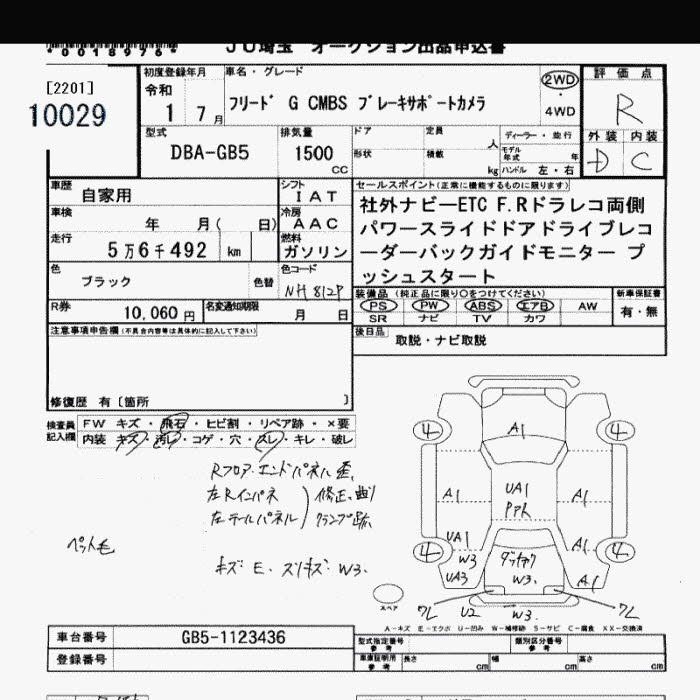 *0018976*
JU埼玉 オークション出品申込書
[2201]
10029
初度登録年月
令和
1 7月
車名・グレード
フリード G CMBS ブレーキサポートカメラ
2WD
・
4WD
評価点
R
外装 内装
D C
型式
DBA-GB5
排気量
1500
CC
ドア
形状
定員
人
積載
kg
ディーラー・並行
モデル年式 年
ハンドル 左・右
車歴
自家用
シフト
I A T
車検
年 月( 日)
冷房
A A C
走行
5万6千492 km
燃料
ガソリン
色
ブラック
色替
色コード
NH812P
セールスポイント(正常に機能するものに限ります)
社外ナビーETC F.Rドラレコ両側
パワースライドドアドライブレコ
ーダーバックガイドモニター プ
ッシュスタート
R券
10,060 円
名変通知期限
月 日
装備品 (純正品に限り○をつけてください)
PS PW ABS エアB AW
SR ナビ TV カワ
新車保証書
有・無
注意事項申告欄(不具合内容等は具体的に記入して下さい)
後日品
取説・ナビ取説
修復歴 有〔箇所 〕
検査員
記入欄
FW キズ・飛石・ヒビ割・リペア跡・×要
内装 キズ・汚れ・コゲ・穴・スレ・キレ・破レ
Rフロア.エンドパネル歪.
左Rインパネ
左テールパネル
修正.曲り
クランプ跡
ペット毛
キズ・E. スリキズ・W3.
A1
4
4
A1
UA1
PアA
A1
UA1
A1
4
4
W3
UA3
W3.
A1
スペア
U2
W3.
A-キズ E-エクボ U-凹み W-補修跡 S-サビ C-腐食 XX-交換済
車台番号
GB5-1123436
登録番号
型式指定番号
参考
類別区分番号
参考
車庫証明用
参考
長さ cm
幅 cm
高さ cm